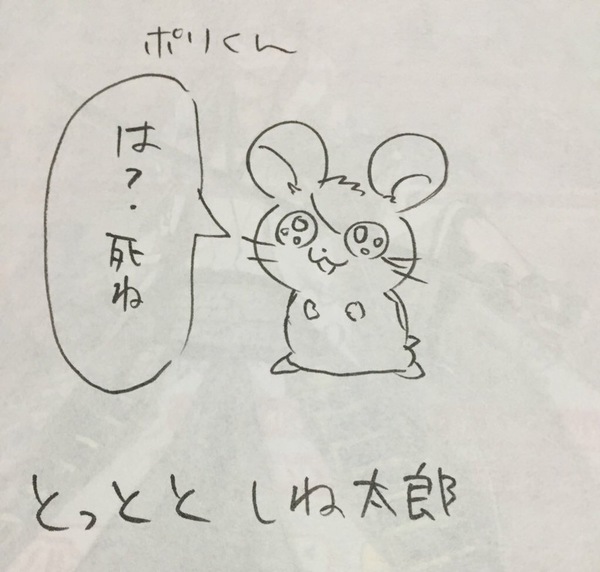 ポリくん
は？・死ね
とっとと しね太郎